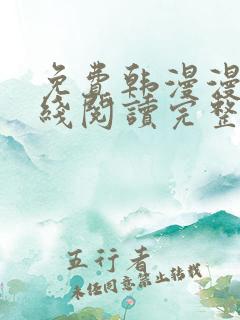 免費韩漫漫
綫閱讀完整
五行者
未经同意禁止转载